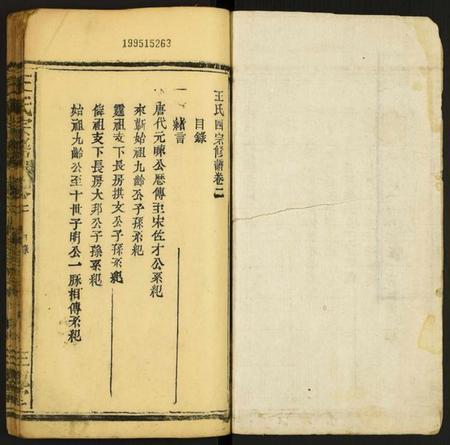 199515263
王氏四宗修譜卷二
目錄
一 緒言
唐代元㬇公歷傳至宋佐才公系紀
來蘄始祖九齡公子孫系紀
霆祖支下長房拱文公子孫系紀
偉祖支下長房大邦公子孫系紀
始祖九齡公至十世子明公一脉相傳系紀